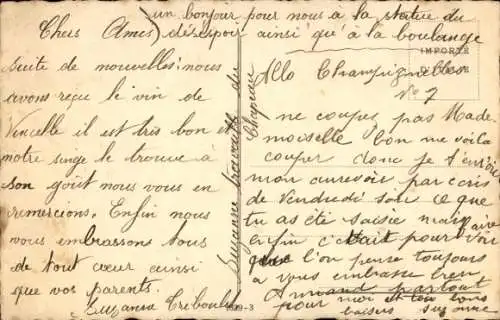 un bonjour pour nous à la statue du
désespoir ainsi qu'à la boulange
Chers Amis
suite de nouvelles: nous
avons reçu le vin de
Vincelle il est très bon et
notre singe le trouve à
son goût nous vous en
remercions. Enfin nous
vous embrassons tous
de tout cœur ainsi
que vos parents.
Suzanne Treboulet
Suzanne travaille du
Chapeau
IMPORTÉ
Allo Champignelles
No 7
ne coupez pas Made
moiselle bon me voila
couper donc je t'envoie
mon aurevoir par ecris
de Vendredi soir ce que
tu as été saisie mais
enfin c'était pour voir
que l'on pense toujours
a vous embrasse bien
Armand partout
pour moi et ton tous
baisers suzanne
99-3